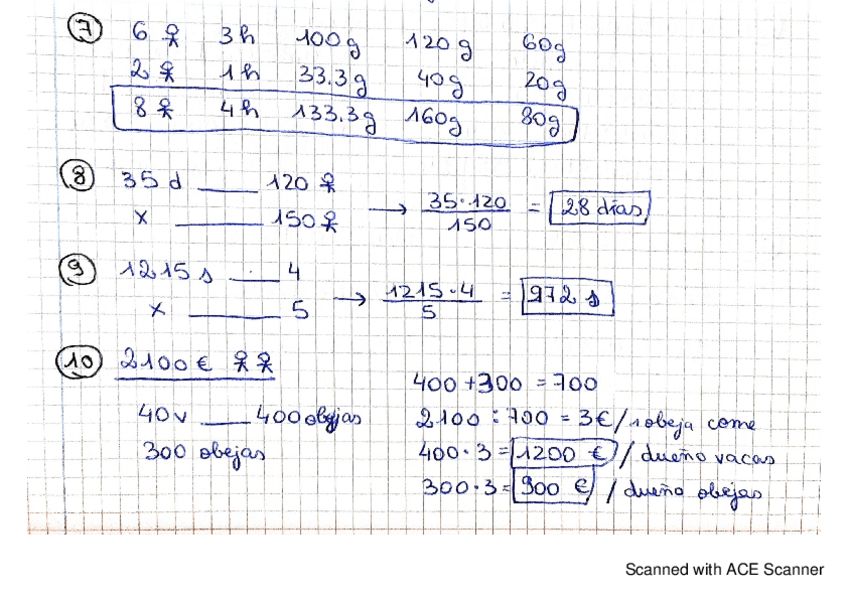 7 6 3h 100g 120g 60g
2 1h 33.3g 40g 20g
8 4h 133.3g 160g 80g
8 35 d ____ 120
x ____ 150 → 35·120/150 = 28 días
9 1215 s ____ 4
x ____ 5 → 1215·4/5 = 972 s
10 2100€
40v ____ 400 obejas
300 obejas
400+300 = 700
2100 : 700 = 3€/1 obeja come
400·3 = 1200 € / dueño vacas
300·3 = 900 € / dueño obejas
Scanned with ACE Scanner